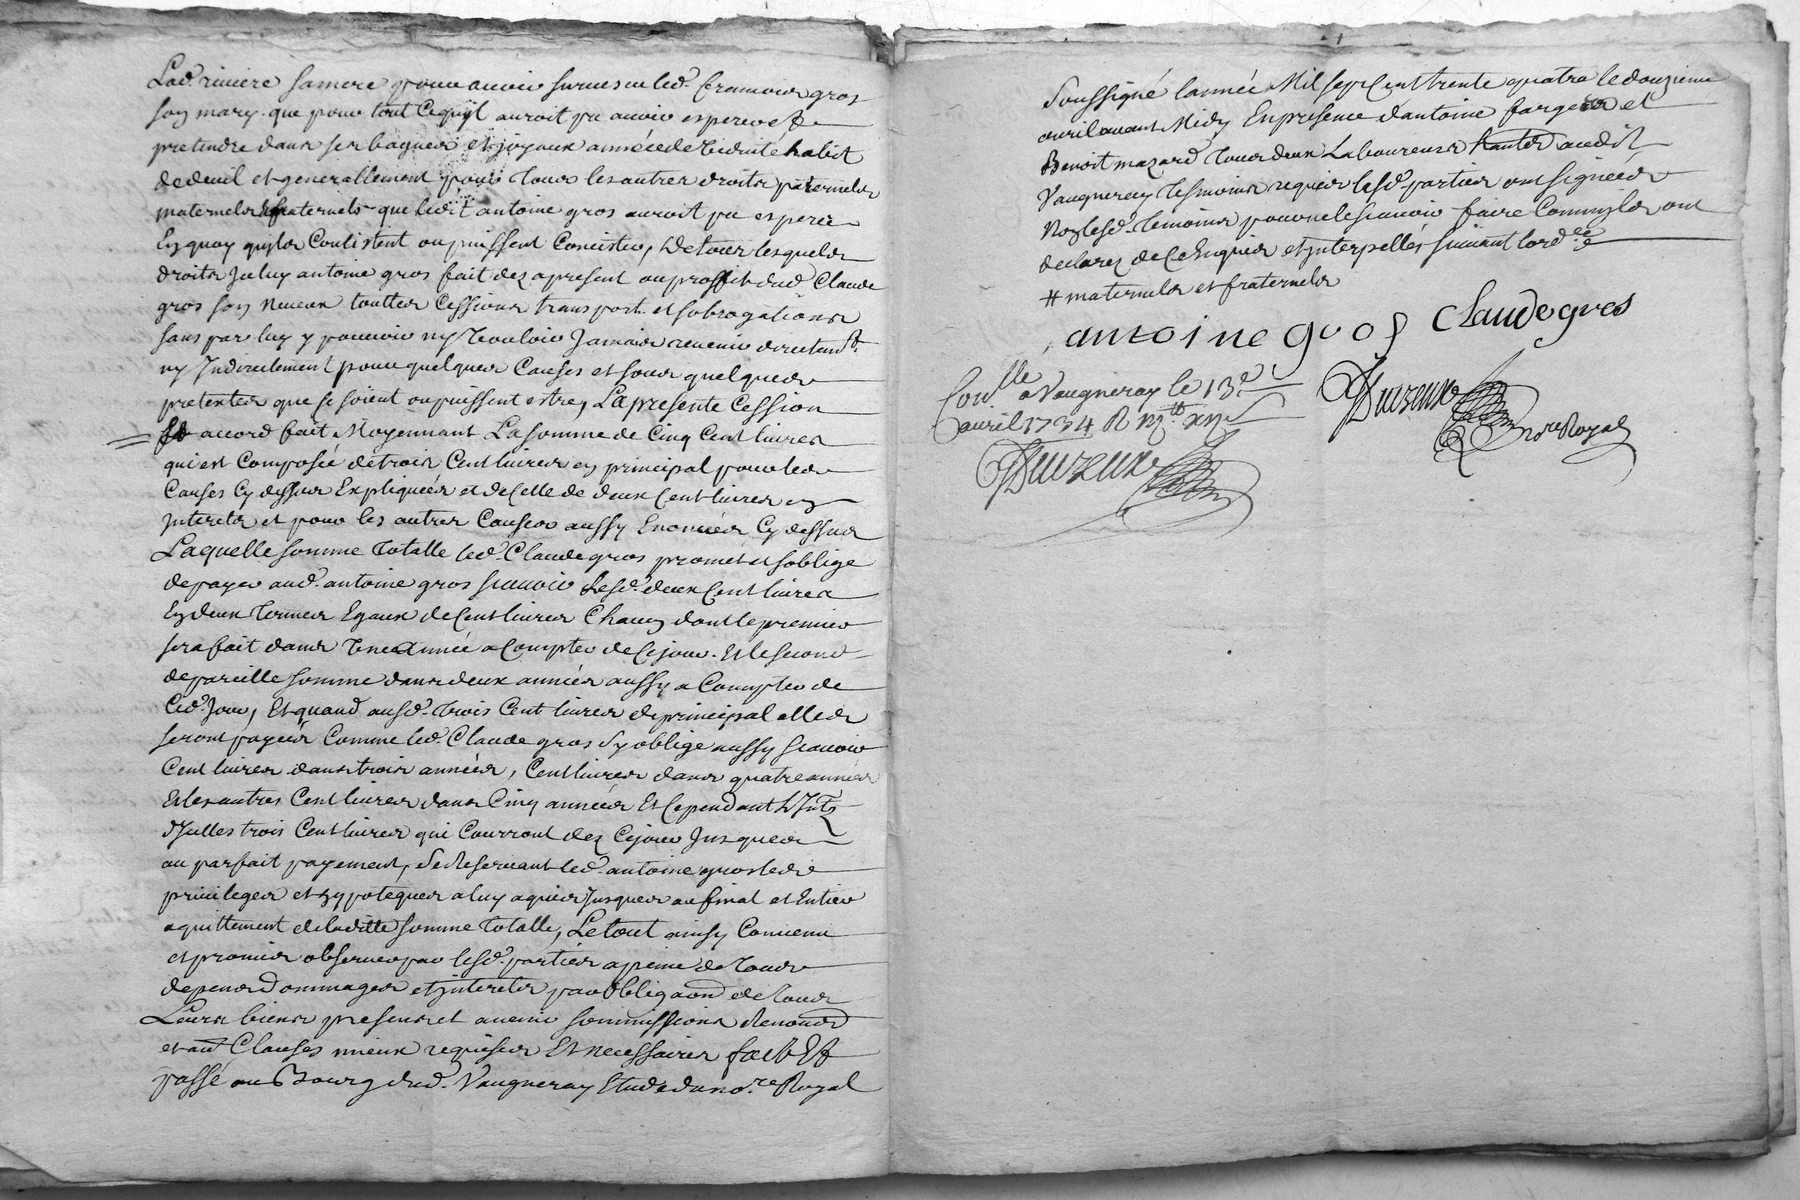 Lad. riviere sa mere pour avoir survescu led. gros
son mary que pour tout ce qu'il auroit pu avoir esperer et
pretendre dans ses bagues et joyaux année de viduité habit
de deuil et generallement pour tous les autres droits paternels
maternels et fraternels que ledit antoine gros auroit pu esperer
en quoy qu'ils Consistent ou puissent Concister, De tous lesquels
droits Iceluy antoine gros fait dez apresent au proffit dud. Claude
gros son neveux touttes Cessions transport et subrogations
sans par luy y pouvoir ny vouloir Jamais revenir directemt.
ny Indirectement pour quelques Causes et sous quelques
pretextes que se soient ou puissent estre, La presente Cession
accord fait Moyennant La somme de Cinq Cent livres
qui est Composée de trois Cent livres en principal pour les
Causes Cy dessus Expliquées et de Celle de deux Cent livres en
Interets et pour les autres Causes aussy Enoncées Cy dessus
Laquelle somme Totalle led. Claude gros promet et s'oblige
de payer aud. antoine gros scavoir Lesd. deux Cent livres
En deux Termes Egaux de Cent livres Chacun dont le premier
sera fait dans Une Année a Compter de Ce jour. Et le second
de pareille somme dans deux années aussy a Compter de
Ced. Jour, Et quand ausd. Trois Cent livres de principal elles
seront payées Comme led. Claude gros s'y oblige aussy scavoir
Cent livres dans trois années, Cent livres dans quatre années
Et les autres Cent livres dans Cinq années Et Cependant L'Intz
d'Icelles trois Cent livres qui Courront dez Ce jour Jusques
au parfait payement, se Reservant led. antoine gros lesd.
privileges et hypoteques a luy aquis Jusques au final et Entier
aquittement de laditte somme Totalle, Le tout ainsy Convenu
et promis observer par lesd. parties a peine de Tous
depens Dommages et Interets par Obligaon de Tous
Leurs biens presens et avenir sommissions Renonons
et aut Clauses mieux requises Et necessaires fait Et
passé au Bourg dud. Vaugneray Etude du nore. Royal
soussigné l'année Mil sept Cent trente quatre le douzieme
avril avant Midy En presence d'antoine farges et
Benoit mazard Tous deux Laboureurs audit
Vaugneray Tesmoins requis lesd. parties ont signées
Non lesd. Temoins pour ne le scavoir faire Comm'ils ont
declarez de Ce Enquis et Interpellés suivant l'ordce
# maternels et fraternels
antoine gros Claude gros
Conlle a Vaugneray le 13e
avril 1734 R
nore Royal